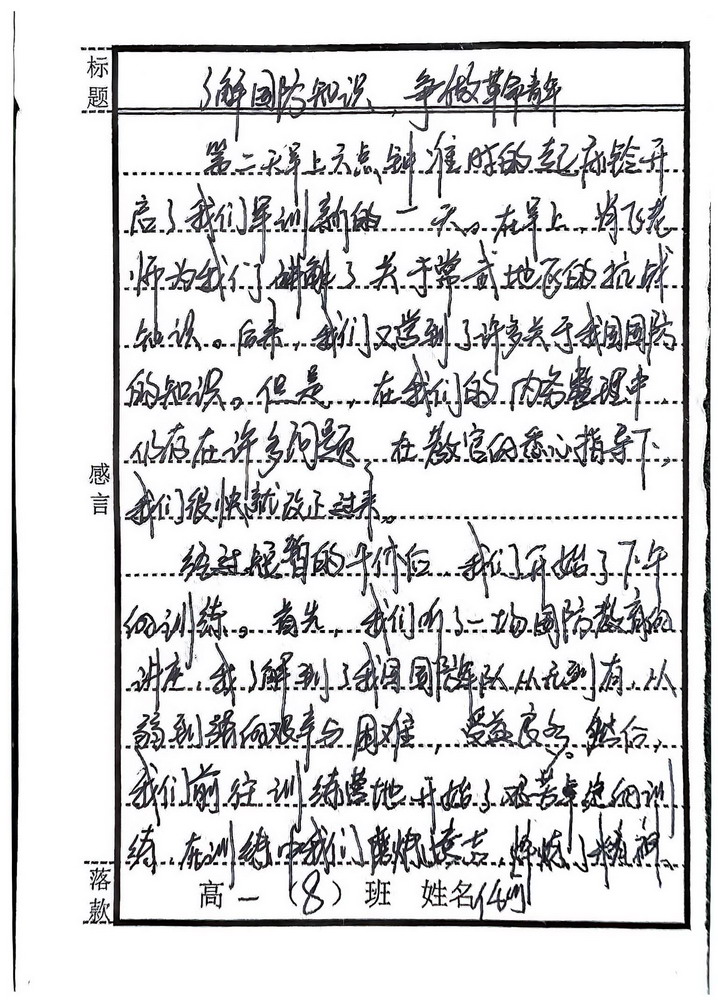 标题
了解国防知识,争做革命青年
第二天早上六点钟准时的起床铃开
启了我们军训新的一天。在早上,蒋飞老
师为我们讲解了关于常武地区的抗战
知识。后来,我们又学到了许多关于我国国防
的知识。但是,在我们的内务整理中,
仍存在许多问题,在教官的悉心指导下,
感言
我们很快就改正过来。
经过短暂的午休后,我们开始了下午
的训练。首先,我们听了一场国防教育的
讲座,我了解到了我国国防军队从无到有,从
弱到强的艰辛与困难,受益良多。然后,
我们前往训练营地开始了艰苦卓绝的训
练,在训练中我们磨炼意志,锻炼了精神。
落款
高一(8)班 姓名